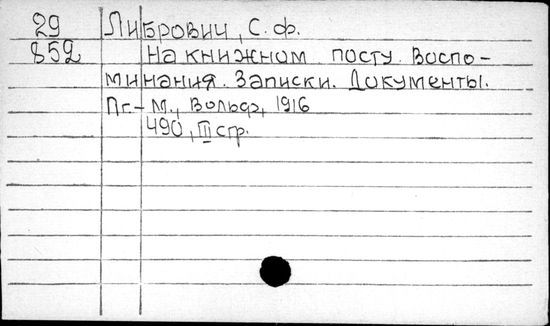 29 Либрович, С. Ф.
852 На книжном посту. Воспо-
минания. Записки. Документы.
Пг.-М., Вольф, 1916
490, III стр.